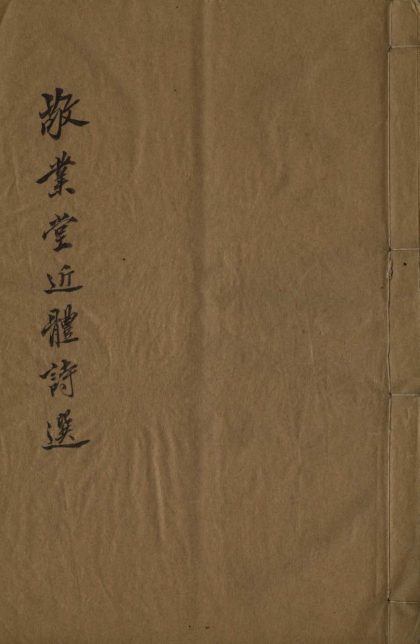 敬業堂近體詩選